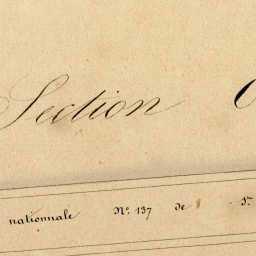 Section
nationnale Nº 137 de St